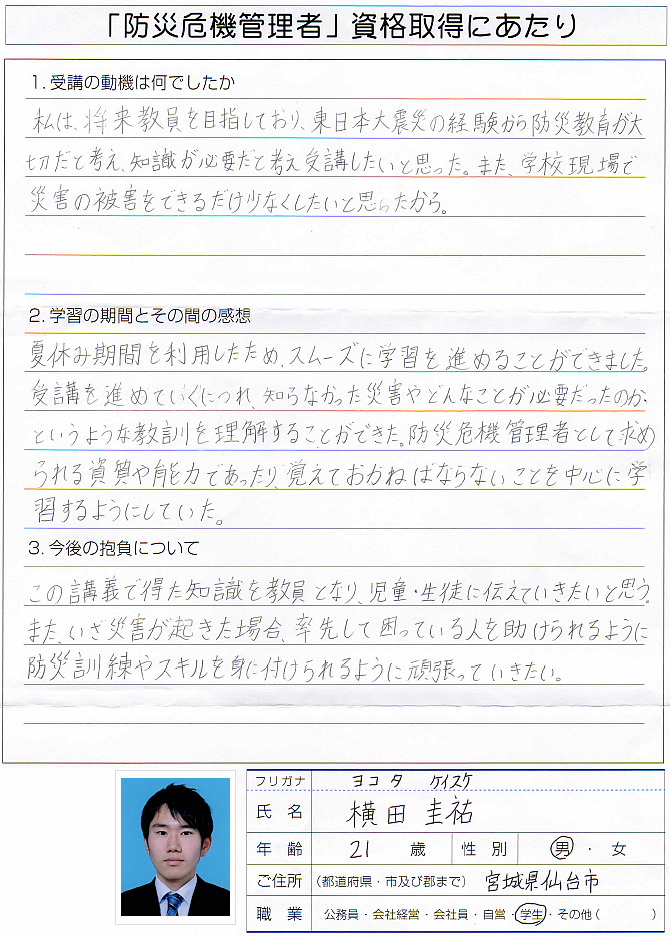 「防災危機管理者」資格取得にあたり
1. 受講の動機は何でしたか
私は、将来教員を目指しており、東日本大震災の経験から防災教育が大
切だと考え、知識が必要だと考え受講したいと思った。また、学校現場で
災害の被害をできるだけ少なくしたいと思ったから。
2. 学習の期間とその間の感想
夏休み期間を利用したため、スムーズに学習を進めることができました。
受講を進めていくにつれ、知らなかった災害やどんなことが必要だったのか
というような教訓を理解することができた。防災危機管理者として求め
られる資質や能力であったり、覚えておかねばならないことを中心に学
習するようにしていた。
3. 今後の抱負について
この講義で得た知識を教員となり、児童・生徒に伝えていきたいと思う。
また、いざ災害が起きた場合、率先して困っている人を助けられるように
防災訓練やスキルを身に付けられるように頑張っていきたい。
フリガナ ヨコタ ケイスケ
氏 名 横田 圭祐
年 齢 21 歳 性 別 男 ・ 女
ご住所 (都道府県・市及び郡まで) 宮城県仙台市
職 業 公務員・会社経営・会社員・自営・学生・その他( )